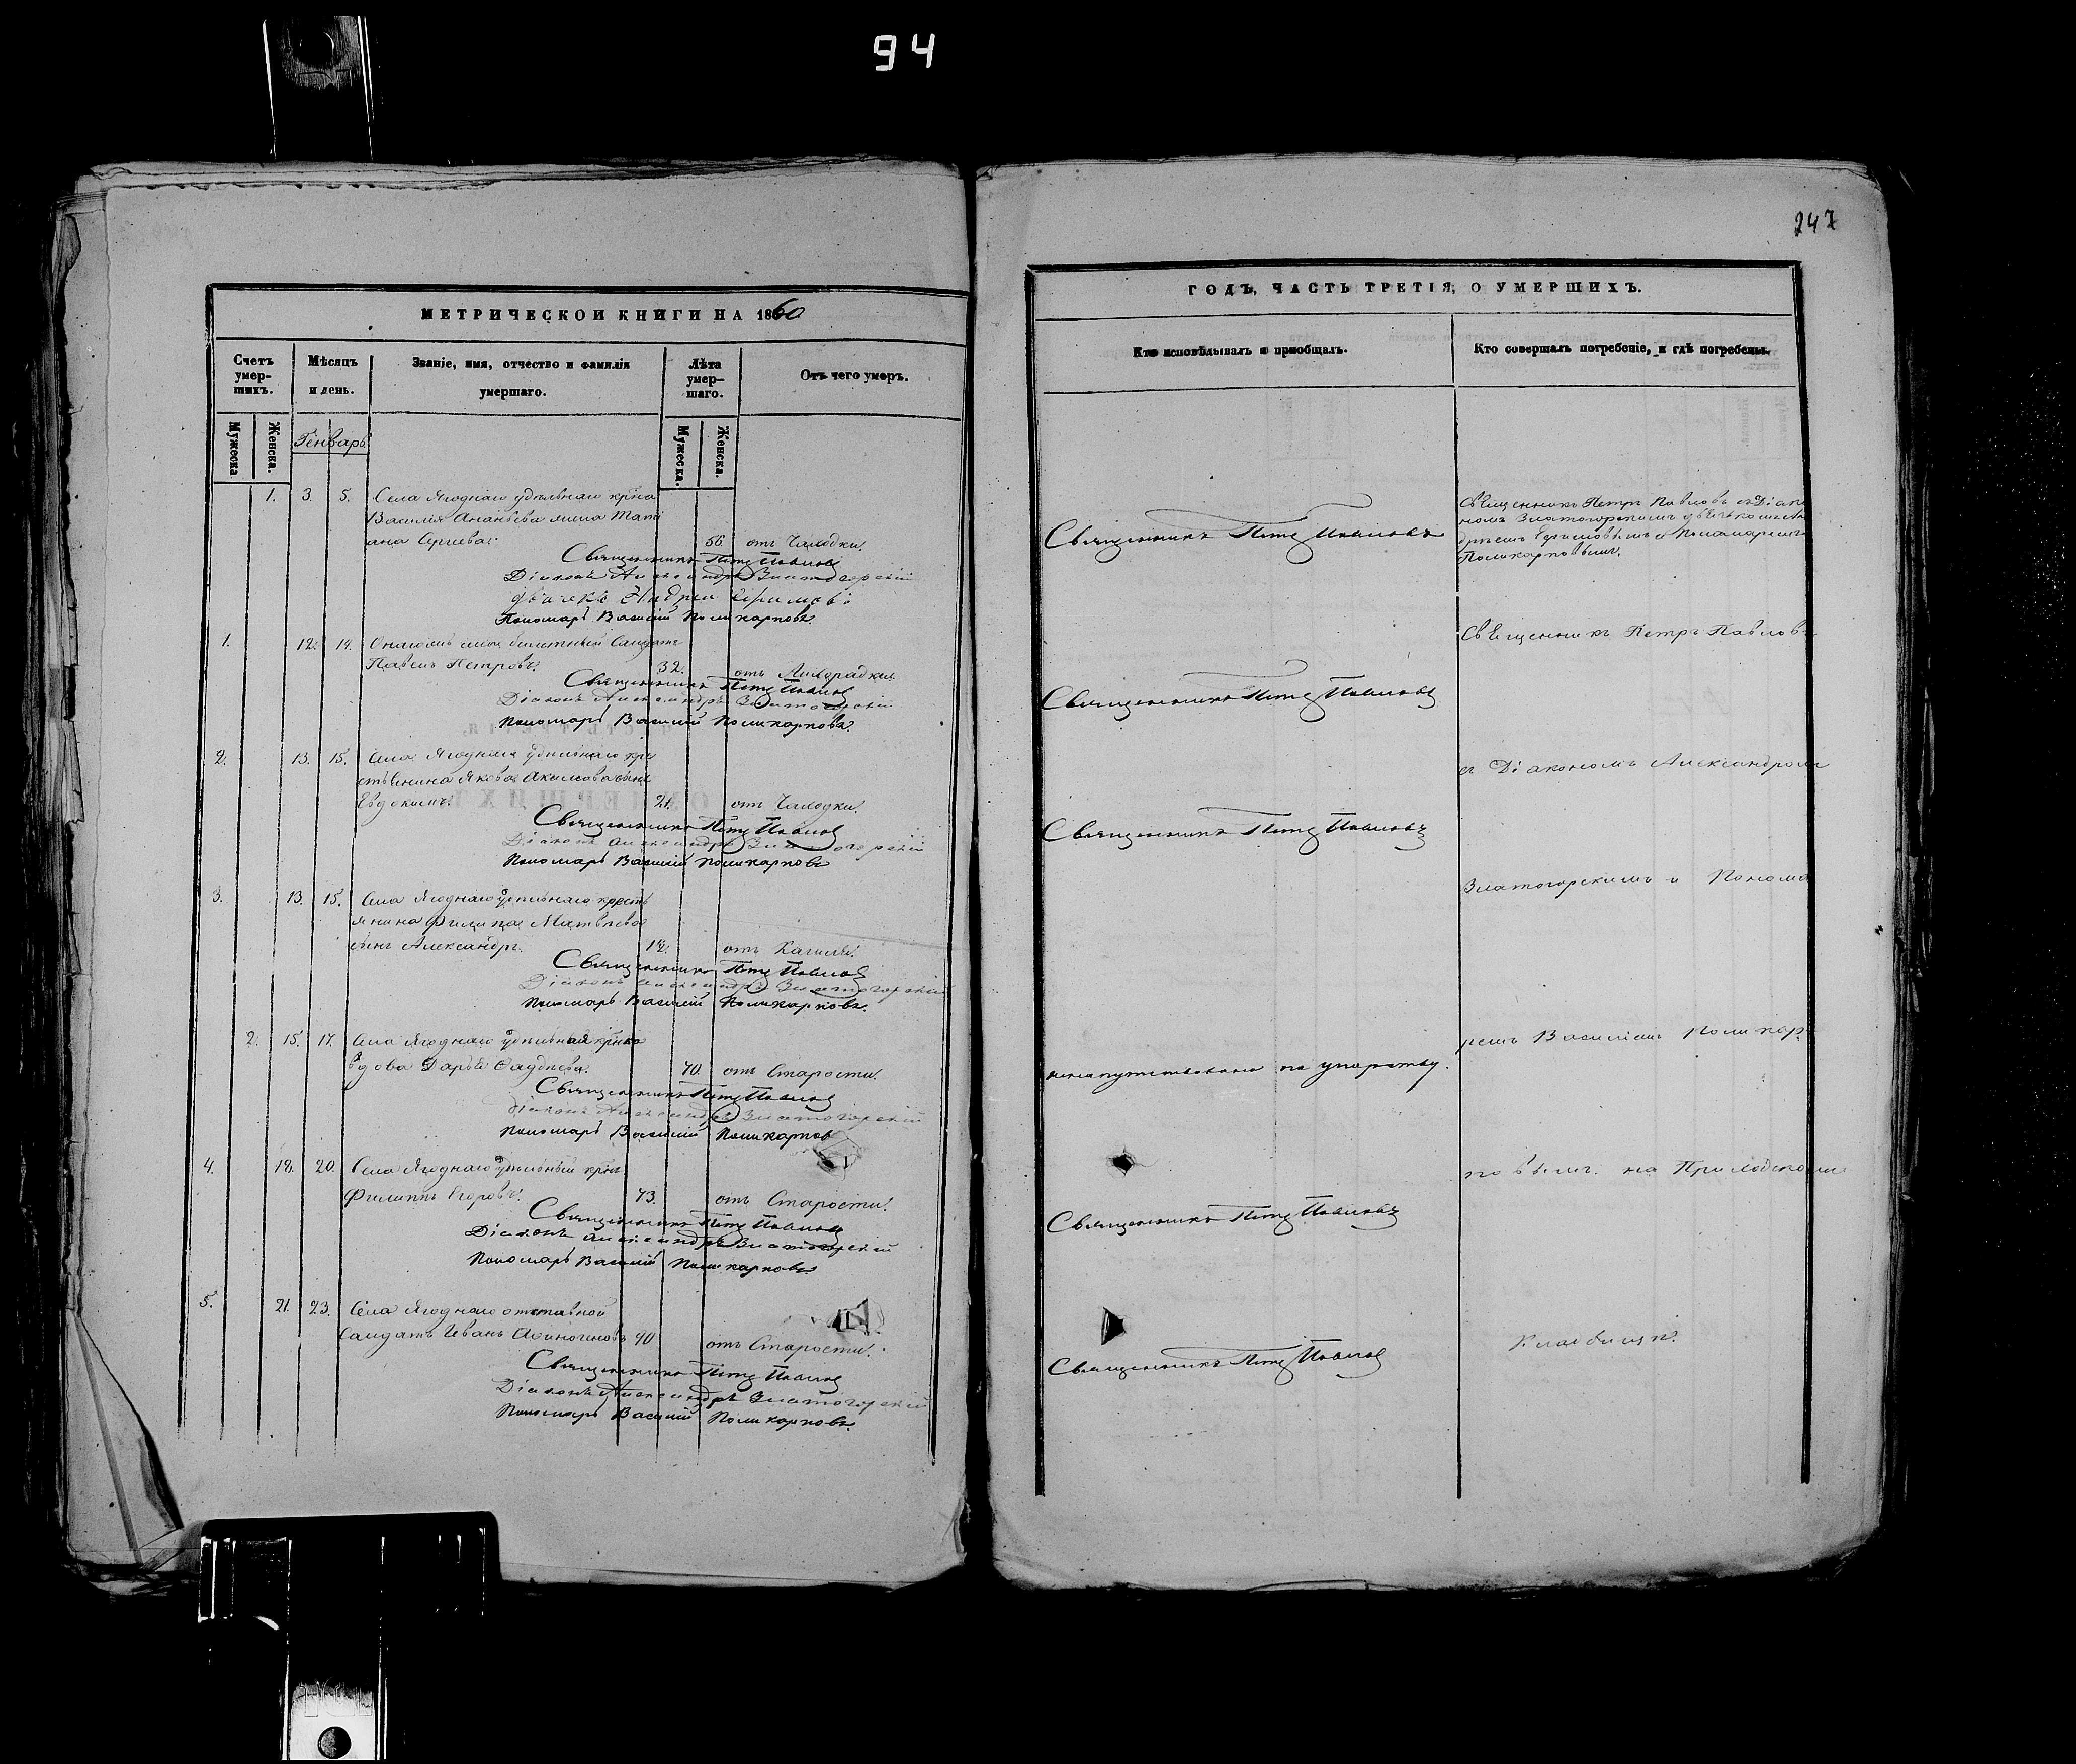 94
247
МЕТРИЧЕСКОЙ КНИГИ НА 1860
Счетъ умер-шихъ.
Мѣсяцъ и день.
Званіе, имя, отчество и фамилія умершаго.
Лѣта умер-шаго.
Отъ чего умеръ.
Мужеска
Женска.
Генварь
Мужеска.
Женска.
1. 3. 5. Села Ягоднаго удѣльнаго крна
Василія Ананьева жена Тати
ана Сергиева. 56. отъ Чаходки.
Священникъ Петръ Павловъ
Діаконъ Александръ Златогорскій
дьячекъ Андрей Ефимовъ
Пономарь Василій Поликарповъ
1. 12. 14. Онагожъ села билетный Солдатъ
Павелъ Петровъ. 32. отъ Лихорадки.
Священникъ Петръ Павловъ
Діаконъ Александръ Златогорскій
Пономарь Василій Поликарповъ.
2. 13. 15. Села Ягоднаго удѣльнаго кре
стьянина Якова Акимова сынъ
Евдокимъ. 21. отъ Чаходки.
Священникъ Петръ Павловъ
Діаконъ Александръ Златогорскій
Пономарь Василій Поликарповъ
3. 13. 15. Села Ягоднаго удѣльнаго кресть
янина Филипа Матвѣева
сынъ Александръ. 12. отъ Кашля.
Священникъ Петръ Павловъ
Діаконъ Александръ Златогорскій
Пономарь Василій Поликарповъ.
2. 15. 17. Села Ягоднаго удѣльная крнка
вдова Дарья Фаддѣева. 70. отъ Старости.
Священникъ Петръ Павловъ
Діаконъ Александръ Златогорскій
Пономарь Василій Поликарповъ
4. 18. 20. Села Ягоднаго удѣльный крнъ
Филиппъ Егоровъ. 73. отъ Старости.
Священникъ Петръ Павловъ
Діаконъ Александръ Златогорскій
Пономарь Василій Поликарповъ
5. 21. 23. Села Ягоднаго отставной
Салдатъ Иванъ Афиногеновъ 70 отъ Старости.
Священникъ Петръ Павловъ
Діаконъ Александръ Златогорскій
Пономарь Василій Поликарповъ.
ГОДЪ, ЧАСТЬ ТРЕТІЯ, О УМЕРШИХЪ.
Кто исповѣдывалъ и пріобщалъ.
Кто совершалъ погребеніе, и гдѣ погребены.
Священникъ Петръ Павловъ
Священникъ Петръ Павловъ
Священникъ Петръ Павловъ
по упорству.
Священникъ Петръ Павловъ
Священникъ Петръ Павловъ
Священникъ Петръ Павловъ съ Діако
номъ Златогорскимъ дьячкомъ Ан
дреемъ Ефимовымъ и Пономаремъ
Поликарповымъ.
Священникъ Петръ Павловъ
съ Діакономъ Александромъ
Златогорскимъ и Понома
ремъ Василіемъ Поликар
повымъ. на Приходскомъ
Кладбищѣ.